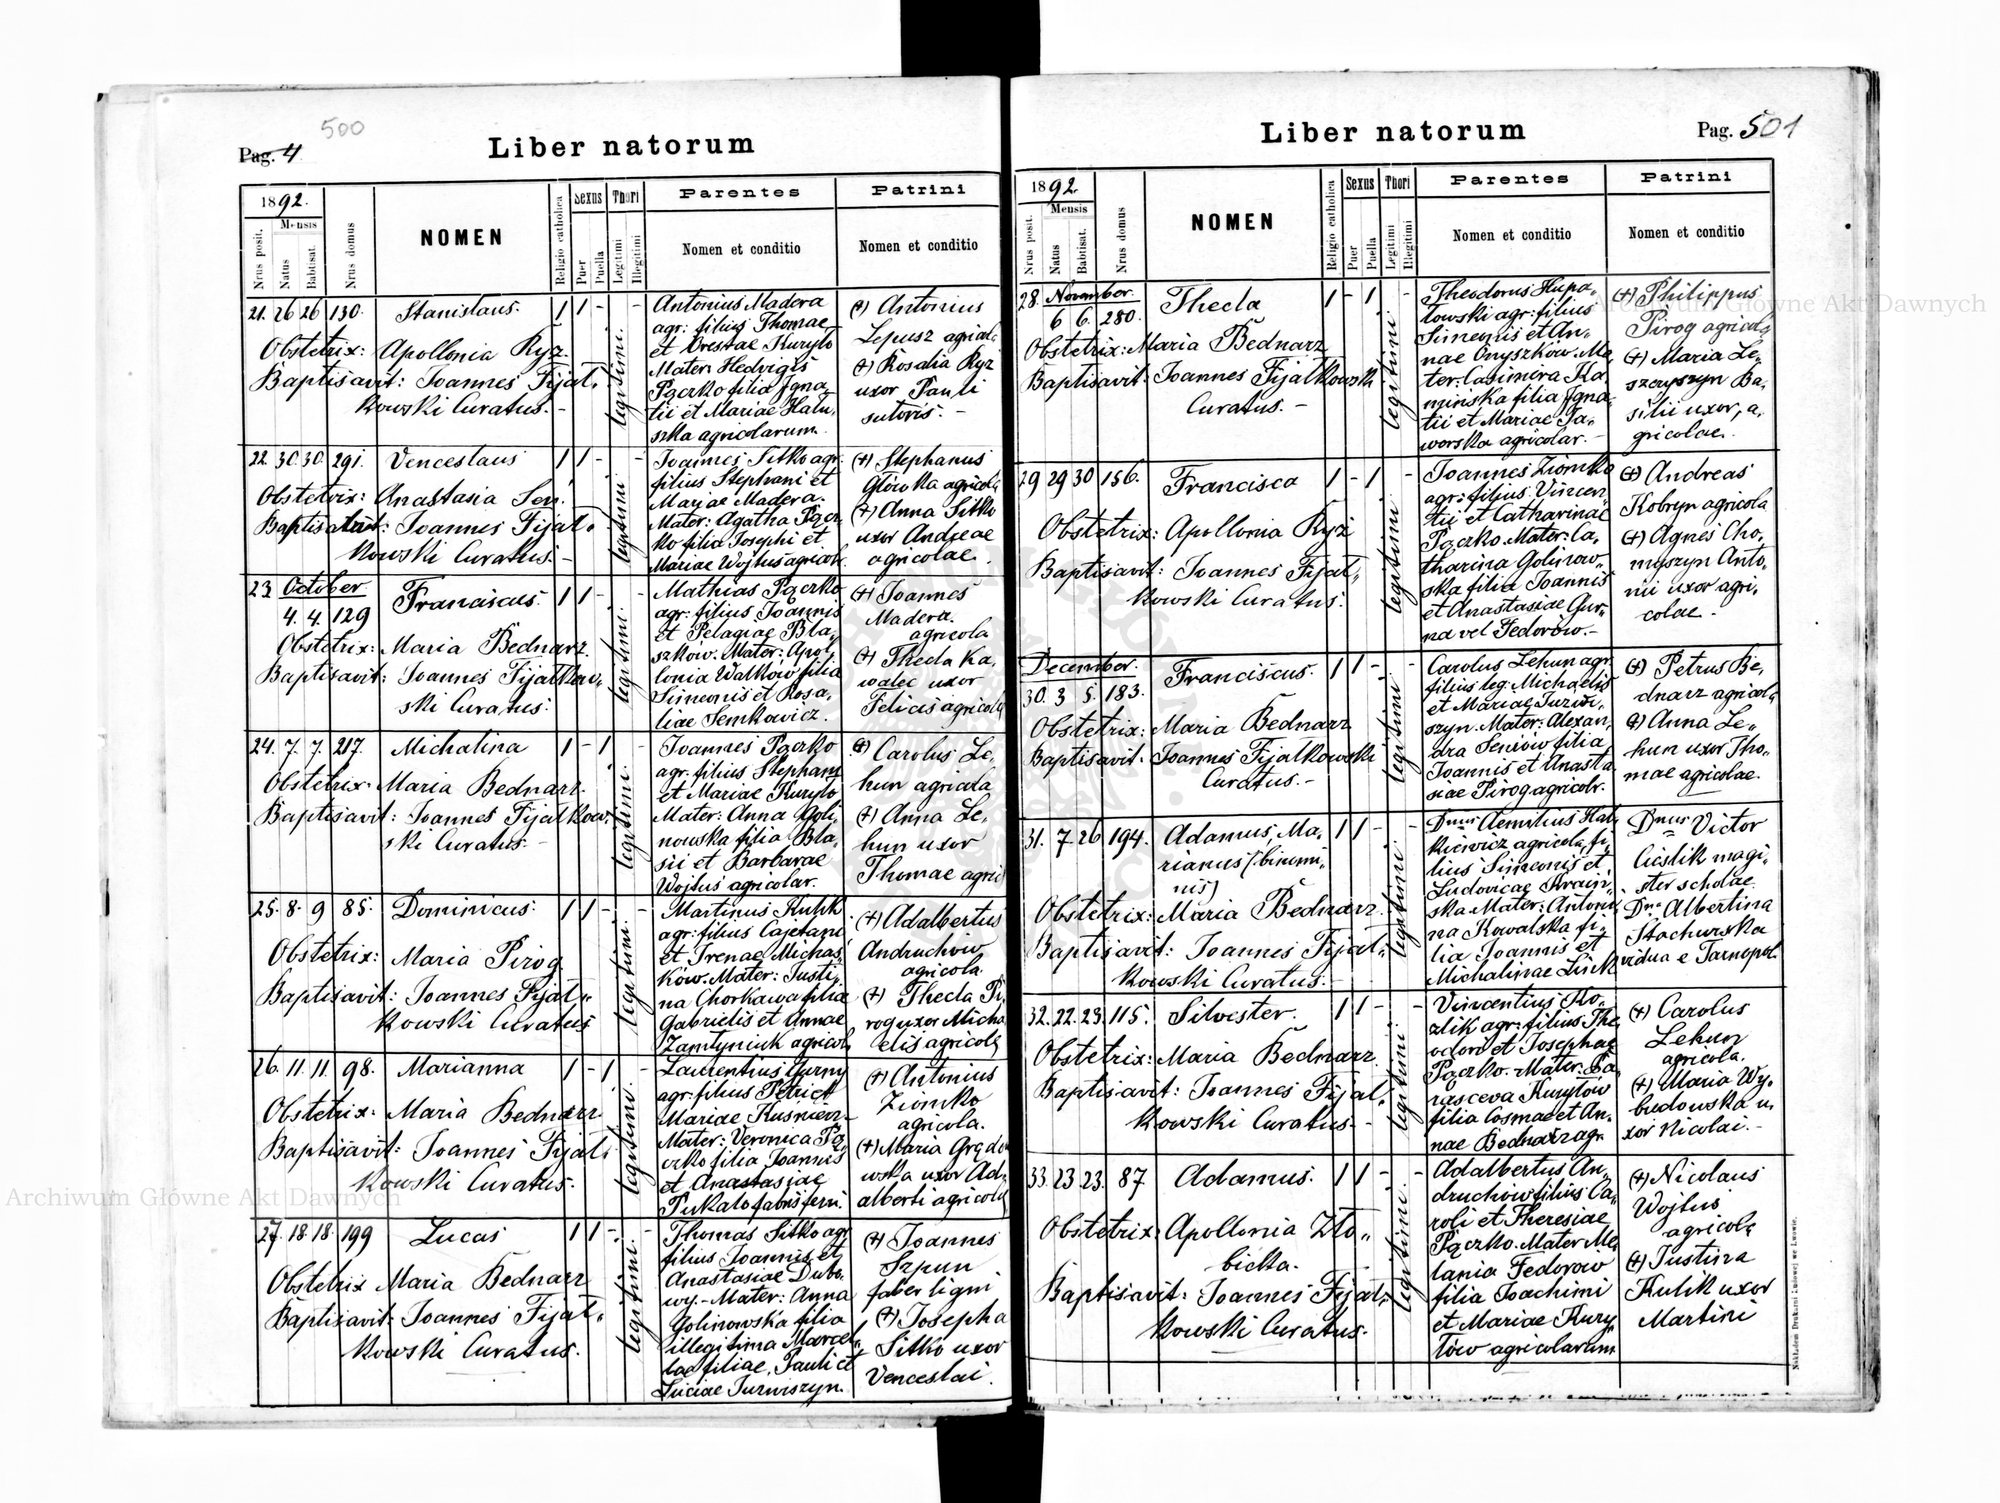 500
Pag. 4
Liber natorum
1892.
Mensis
Nrus posit.
Natus
Babtisat.
Nrus domus
NOMEN
Religio catholica
Sexus
Puer
Puella
Thori
Legitimi
Illegitimi
Parentes
Nomen et conditio
Patrini
Nomen et conditio
21. 26 26 130. Stanislaus. 1 1 - -
Obstetrix: Apollonia Ryz.
Baptisavit: Joannes Fijał-
kowski Curatus. -
legitimi.
Antonius Madera
agr: filius Thomae
et Orestae Kuryło
Mater: Hedvigis
Pączko filia Igna-
tii et Mariae Hału-
szka agricolarum.
(+) Antonius
Lepusz agricola
(+) Rosalia Ryz
uxor Pauli
sutoris. -
22. 30. 30. 291. Venceslaus 1 1 - -
Obstetrix: Anastasia Sen.
Baptisavit: Joannes Fijał-
kowski Curatus. -
legitimi
Joannes Sitko agr.
filius Stephani et
Mariae Madera.
Mater: Agatha Pącz-
ko filia Josephi et
Mariae Wojtus agricol.
(+) Stephanus
Głowka agricola
(+) Anna Sitko
uxor Andreae
agricolae.
23 October
4. 4. 129 Franciscus. 1 1 - -
Obstetrix: Maria Bednarz.
Baptisavit: Joannes Fijałkow-
ski Curatus.
legitimi.
Mathias Pączko
agr: filius Joannis
et Pelagiae Bła-
szków. Mater: Apol-
lonia Walków filia
Simeonis et Rosa-
liae Semkowicz.
(+) Joannes
Madera.
agricola
(+) Thecla Ka-
walec uxor
Felicis agricolae
24. 7. 7. 217. Michalina 1 - 1 -
Obstetrix: Maria Bednarz.
Baptisavit: Joannes Fijałkow-
ski Curatus. -
legitimi.
Joannes Pączko
agr. filius Stephani
et Mariae Kuryło
Mater: Anna Goli-
nowska filia Bla-
sii et Barbarae
Wojtus agricolar.
(+) Carolus Le-
hun agricola
(+) Anna Le-
hun uxor
Thomae agric
25. 8. 9 85. Dominicus. 1 1 - -
Obstetrix: Maria Pirog
Baptisavit: Joannes Fijał-
kowski Curatus
legitimi.
Martinus Kulik
agr: filius Cajetani
et Irenae Michas-
ków. Mater: Justi-
na Chorkawa filia
Gabrielis et Annae
Zamtyniuk agricol
(+) Adalbertus
Andruchow
agricola.
(+) Thecla Pi-
rog uxor Micha
elis agricolae
26. 11. 11. 98. Marianna 1 - 1 -
Obstetrix: Maria Bednarz
Baptisavit: Joannes Fijał-
kowski Curatus.
legitimi.
Laurentius Gurny
agr: filius Petri et
Mariae Kusnierz-
Mater: Veronica Pą-
czko filia Joannis
et Anastasiae
Pukało fabri ferri.
(+) Antonius
Ziomko
agricola.
(+) Maria Grędo
wska uxor Ad-
alberti agricolae
27. 18. 18. 199 Lucas 1 1 - -
Obstetrix Maria Bednarz
Baptisavit: Joannes Fijał-
kowski Curatus.
legitimi.
Thomas Sitko agr
filius Joannis et
Anastasiae Dubo-
wy. - Mater: Anna
Golinowska filia
illegitima Marcel-
lae filiae, Pauli et
Luciae Jurwiszyn.
(+) Joannes
Szpun
faber ligni
(+) Josepha
Sitko uxor
Venceslai.
Liber natorum
Pag. 501
1892.
Mensis
Nrus posit.
Natus
Babtisat.
Nrus domus
NOMEN
Religio catholica
Sexus
Puer
Puella
Thori
Legitimi
Illegitimi
Parentes
Nomen et conditio
Patrini
Nomen et conditio
28. November.
6 6. 280. Thecla 1 - 1 -
Obstetrix: Maria Bednarz
Baptisavit: Joannes Fijałkowski
Curatus. -
legitimi.
Theodorus Hupa-
łowski agr: filius
Simeonis et An-
nae Onyszków. Ma-
ter: Casimira Ka-
minska filia Igna-
tii et Mariae Ja-
worska agricolar. -
(+) Philippus
Pirog agricola
(+) Maria Le-
szczyszyn Ba-
silii uxor, a-
gricolae.
29 29 30 156. Francisca 1 - 1 -
Obstetrix: Apollonia Ryż
Baptisavit: Joannes Fijał-
kowski Curatus.
legitimi
Joannes Ziomko
agr: filius Vincen
tii et Catharinae
Pączko. Mater: Ca-
tharina Golinow-
ska filia Joannis
et Anastasiae Gur-
na vel Fedorów. -
(+) Andreas
Kobryn agricola
(+) Agnes Cho-
myszyn Anto-
nii uxor agri-
colae.
December.
30. 3 5. 183. Franciscus. 1 1 - -
Obstetrix: Maria Bednarz
Baptisavit. Joannes Fijałkowski
Curatus. -
legitimi
Carolus Lehun agr.
filius leg: Michaelis
et Mariae Jurwi-
szyn. Mater: Alexan-
dra Seniów filia
Joannis et Anasta
siae Pirog agricolr.
(+) Petrus Be-
dnarz agricola
(+) Anna Le-
hun uxor Tho-
mae agricolae.
31. 7. 26 194. Adamus, Ma- 1 1 - -
rianus (binomi-
nis)
Obstetrix: Maria Bednarz.
Baptisavit: Joannes Fijał-
kowski Curatus.
legitimi.
Dnus Aemilius Hal-
kiewicz agricola, fi-
lius Simeonis et
Ludovicae Krain-
ska Mater: Antoni
na Kowalska fi-
lia Joannis et
Michalinae Link
Dnus Victor
Cieslik magi-
ster scholae.
Dna Albertina
Stachurska
vidua e Tarnopol.
32. 22. 23. 115. Silvester. 1 1 - -
Obstetrix: Maria Bednarz
Baptisavit: Joannes Fijał-
kowski Curatus. -
legitimi.
Vincentius Ko-
zlik agr: filius The
odori et Josephae
Pączko. Mater: Pa-
rasceva Kuryłów
filia Cosmae et An-
nae Bednarz agr.
(+) Carolus
Lehun
agricola.
(+) Maria Wy-
budowska u-
xor Nicolai. -
33. 23 23. 87 Adamus. 1 1 - -
Obstetrix: Apollonia Zło-
bicka.
Baptisavit: Joannes Fijał-
kowski Curatus.
legitimi.
Adalbertus An-
druchów filius Ca-
roli et Theresiae
Pączko. Mater Me-
lania Fedorow
filia Joachimi
et Mariae Kury-
łów agricolarum
(+) Nicolaus
Wojtus
agricola
(+) Justina
Kulik uxor
Martini
Nakładem Drukarni Ludowej we Lwowie.
Archiwum Główne Akt Dawnych
Archiwum Główne Akt Dawnych